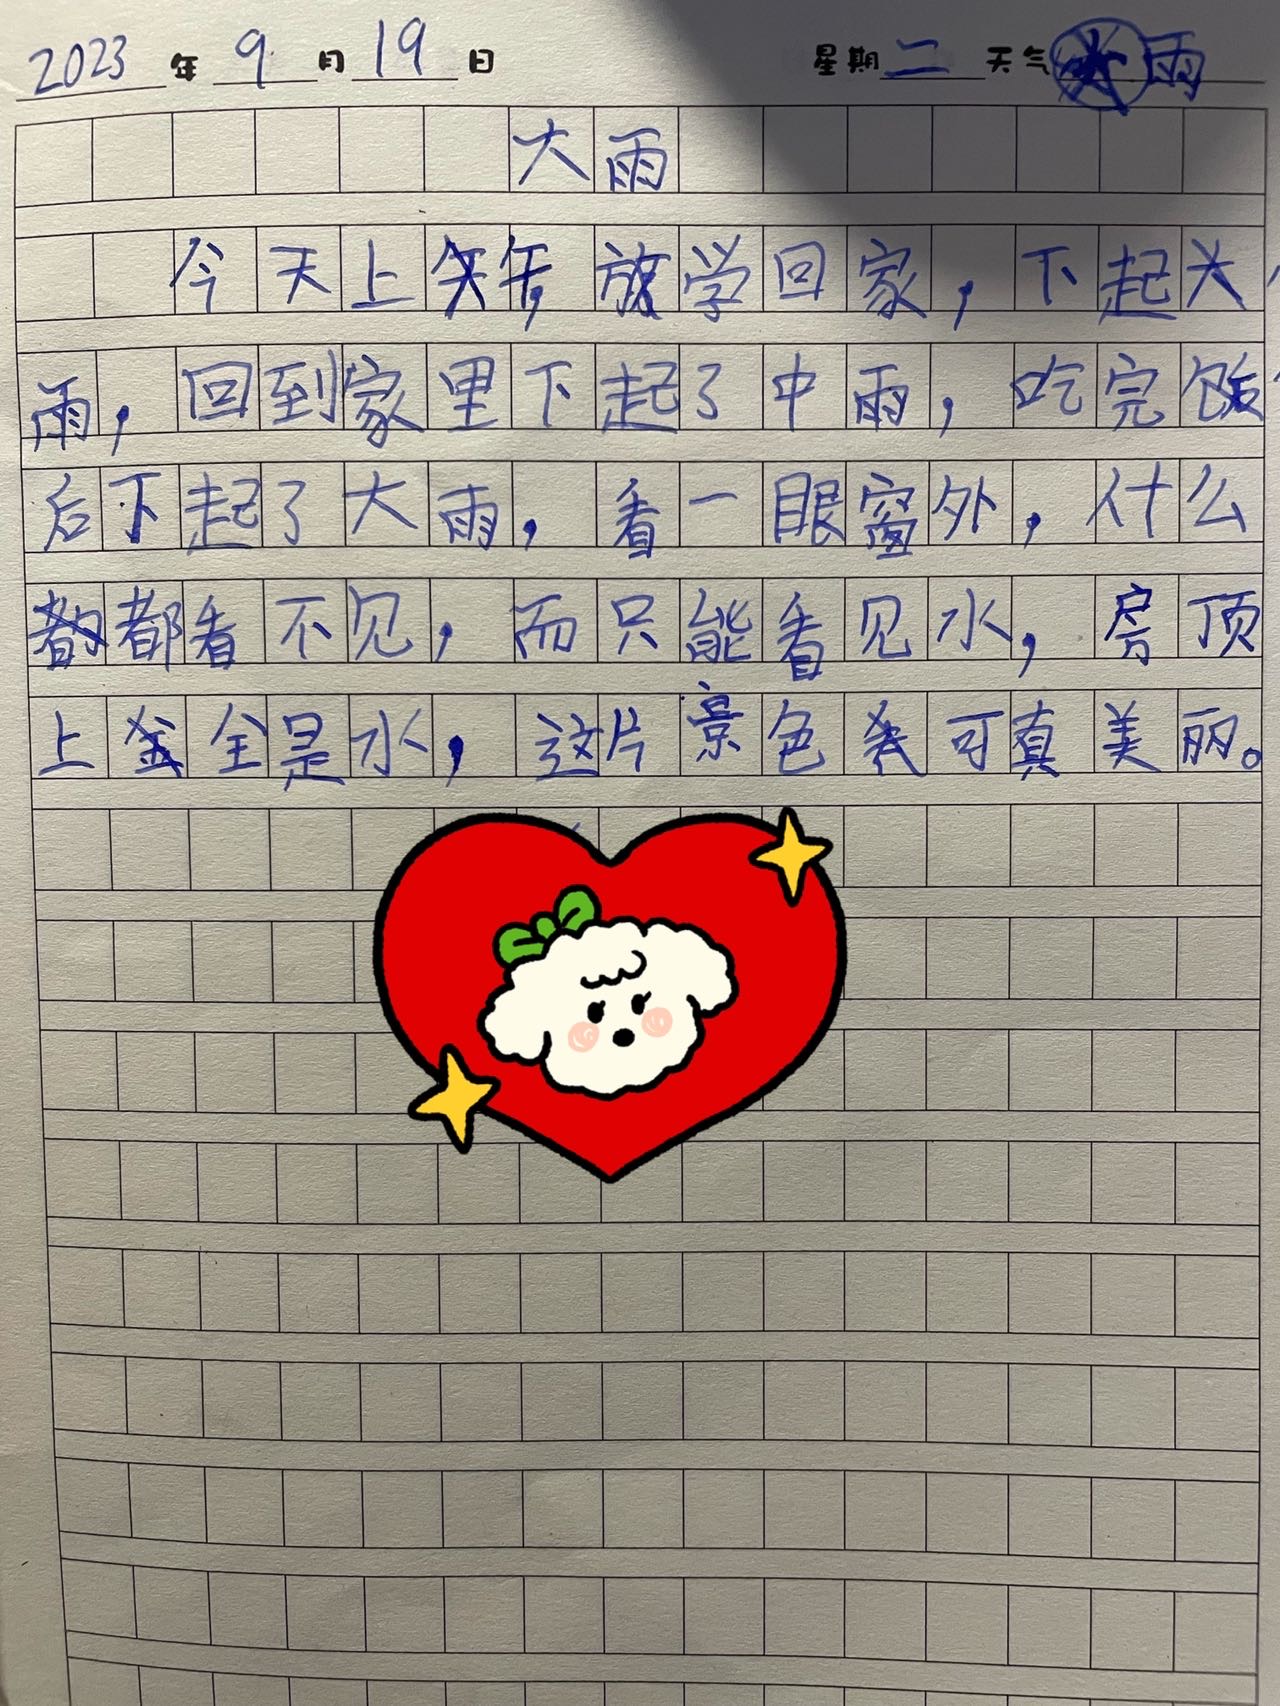 2023年9月19日 星期二 天气 雨
大雨
今天上午放学回家，下起
雨，回到家里下起了中雨，吃完饭
后下起了大雨，看一眼窗外，什么
都看不见，而只能看见水，房顶
上全是水，这片景色可真美丽。